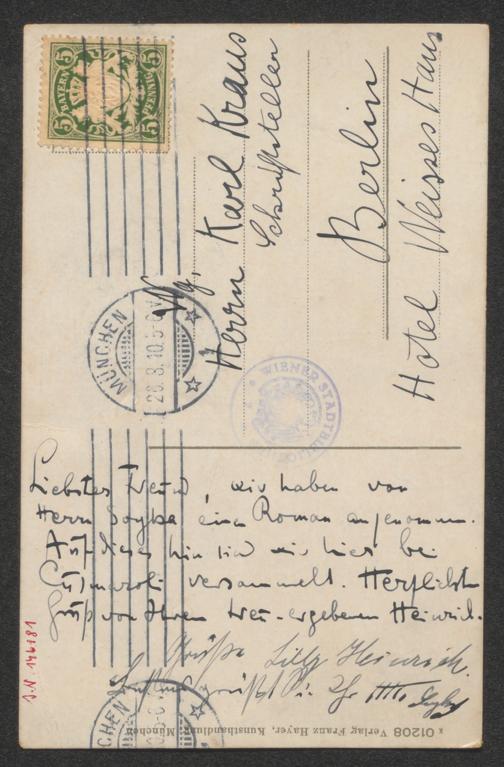 5 BAYERN 5
5 PFENNIG 5
MÜNCHEN
28.8.10. 5-6
Herrn Karl Kraus
Schriftsteller
Berlin
Hotel Weisses Haus
WIENER STADTBIBLIOTHEK
Liebster Freund, wir haben von
Herrn Soyka einen Roman angenommen.
Auf dieses hin sind wir hier bei
versammelt. Herzlichste
Grüße von Ihrem treu-ergebenen Heinrich.
Grüße Lilly Heinrich.
grüßt Sie Ihr Soyka
I.N. 146181
CHEN
01208 Verlag Franz Hayer, Kunsthandlung, München